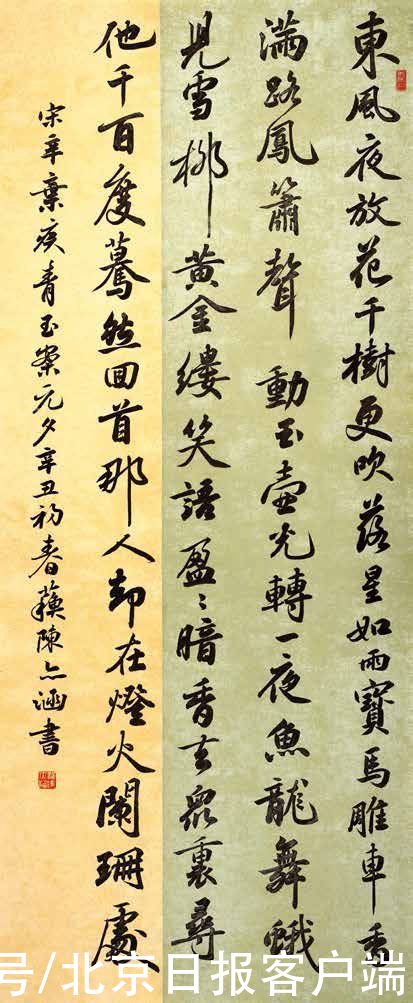 東風夜放花千樹更吹落星如雨寶馬雕車香
滿路鳳簫聲動玉壺光轉一夜魚龍舞蛾
兒雪柳黃金縷笑語盈〻暗香去眾裏尋
他千百度驀然回首那人却在燈火闌珊處
宋辛棄疾青玉案元夕辛丑初春陳涵書
号/北京日报客户端